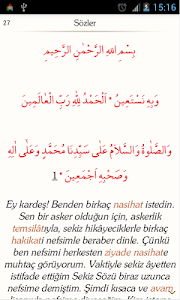 15:16
27
Sözler
بِسْمِ اللّٰهِ الرَّحْمٰنِ الرَّحِيمِ
وَبِهِ نَسْتَعِينُ * اَلْحَمْدُ لِلّٰهِ رَبِّ الْعَالَمِينَ
وَالصَّلٰوةُ وَالسَّلَامُ عَلٰى سَيِّدِنَا مُحَمَّدٍ وَعَلٰى اٰلِهِ
وَصَحْبِهِ اَجْمَعِينَ * 1
Ey kardeş! Benden birkaç nasihat istedin.
Sen bir asker olduğun için, askerlik
temsilâtıyla, sekiz hikâyeciklerle birkaç
hakikati nefsimle beraber dinle. Çünkü
ben nefsimi herkesten ziyade nasihate
muhtaç görüyorum. Vaktiyle sekiz âyetten
istifade ettiğim Sekiz Sözü biraz uzunca
nefsime demiştim. Şimdi kısaca ve avam